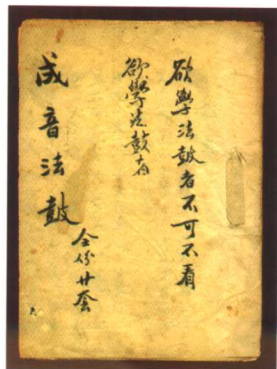 欲學法鼓者不可不看
欲學法鼓者
成音法鼓
全份廿套